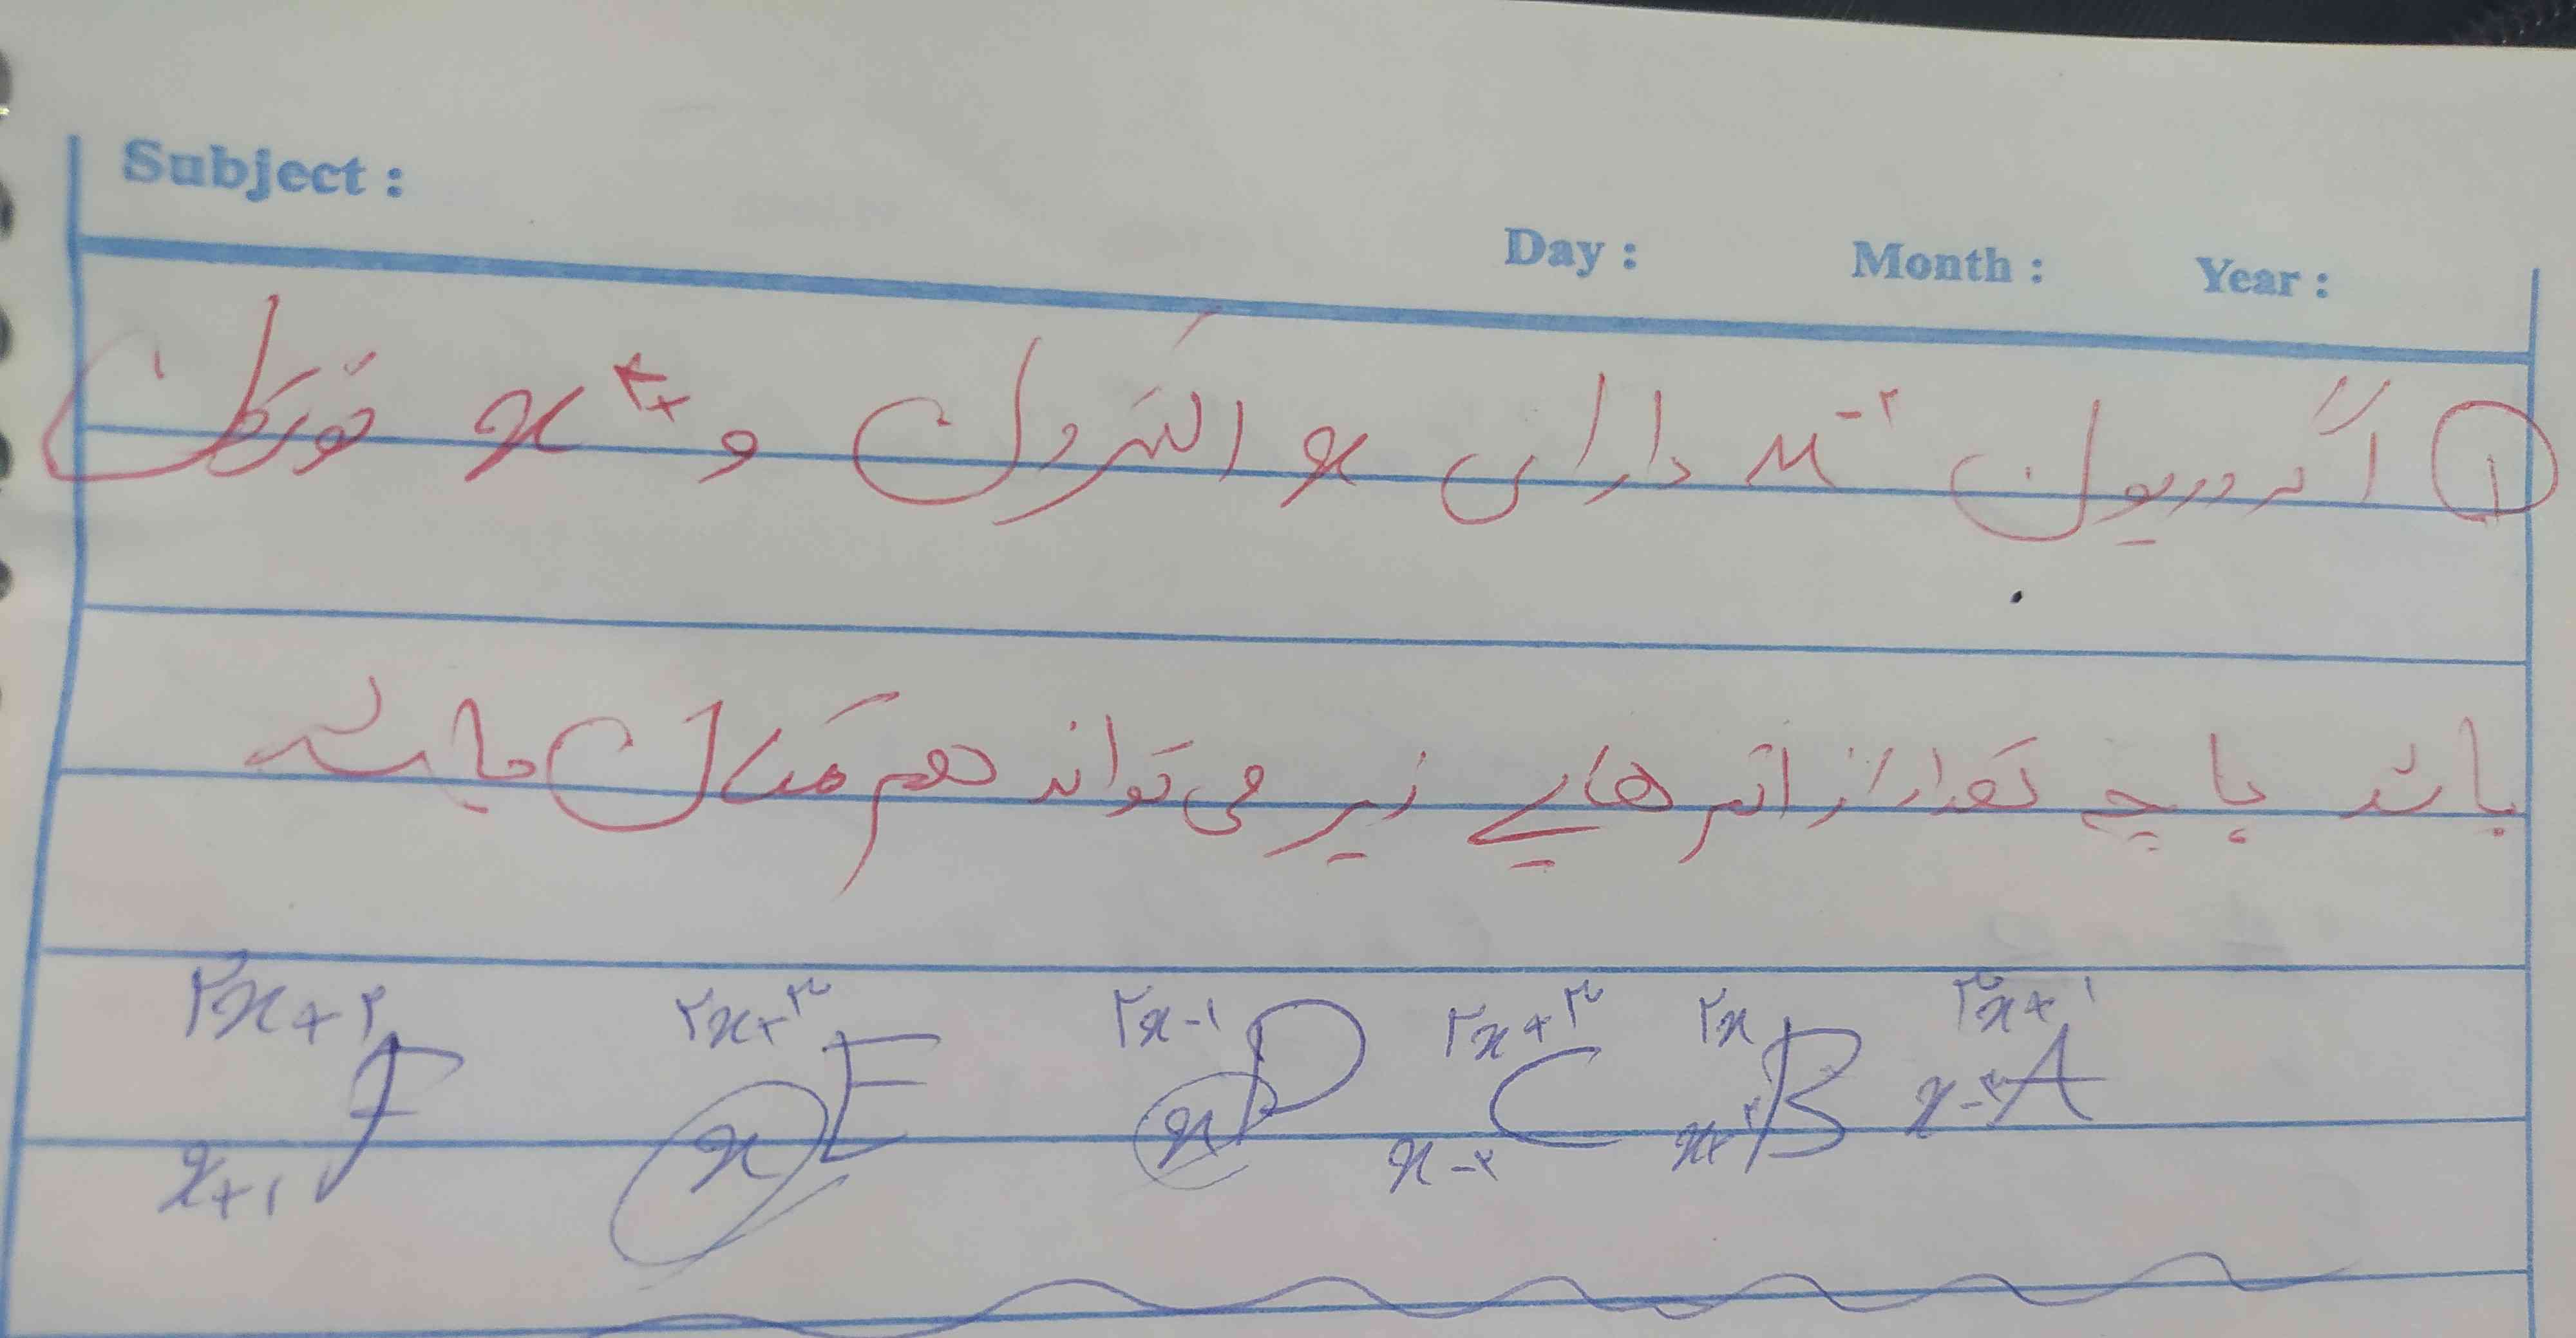 Subject :
Day : Month : Year :
① اگر در یون M²⁻ دارای x الکترون و x+۳ نوترون
باشد با چه تعداد از اتم های زیر می تواند هم مکان باشد
۲x+۱ x-۲ A ۲x x+۲ B ۲x+۳ x-۲ C ۲x-۱ x D ۲x+۳ x E ۲x+۲ x+۱ F